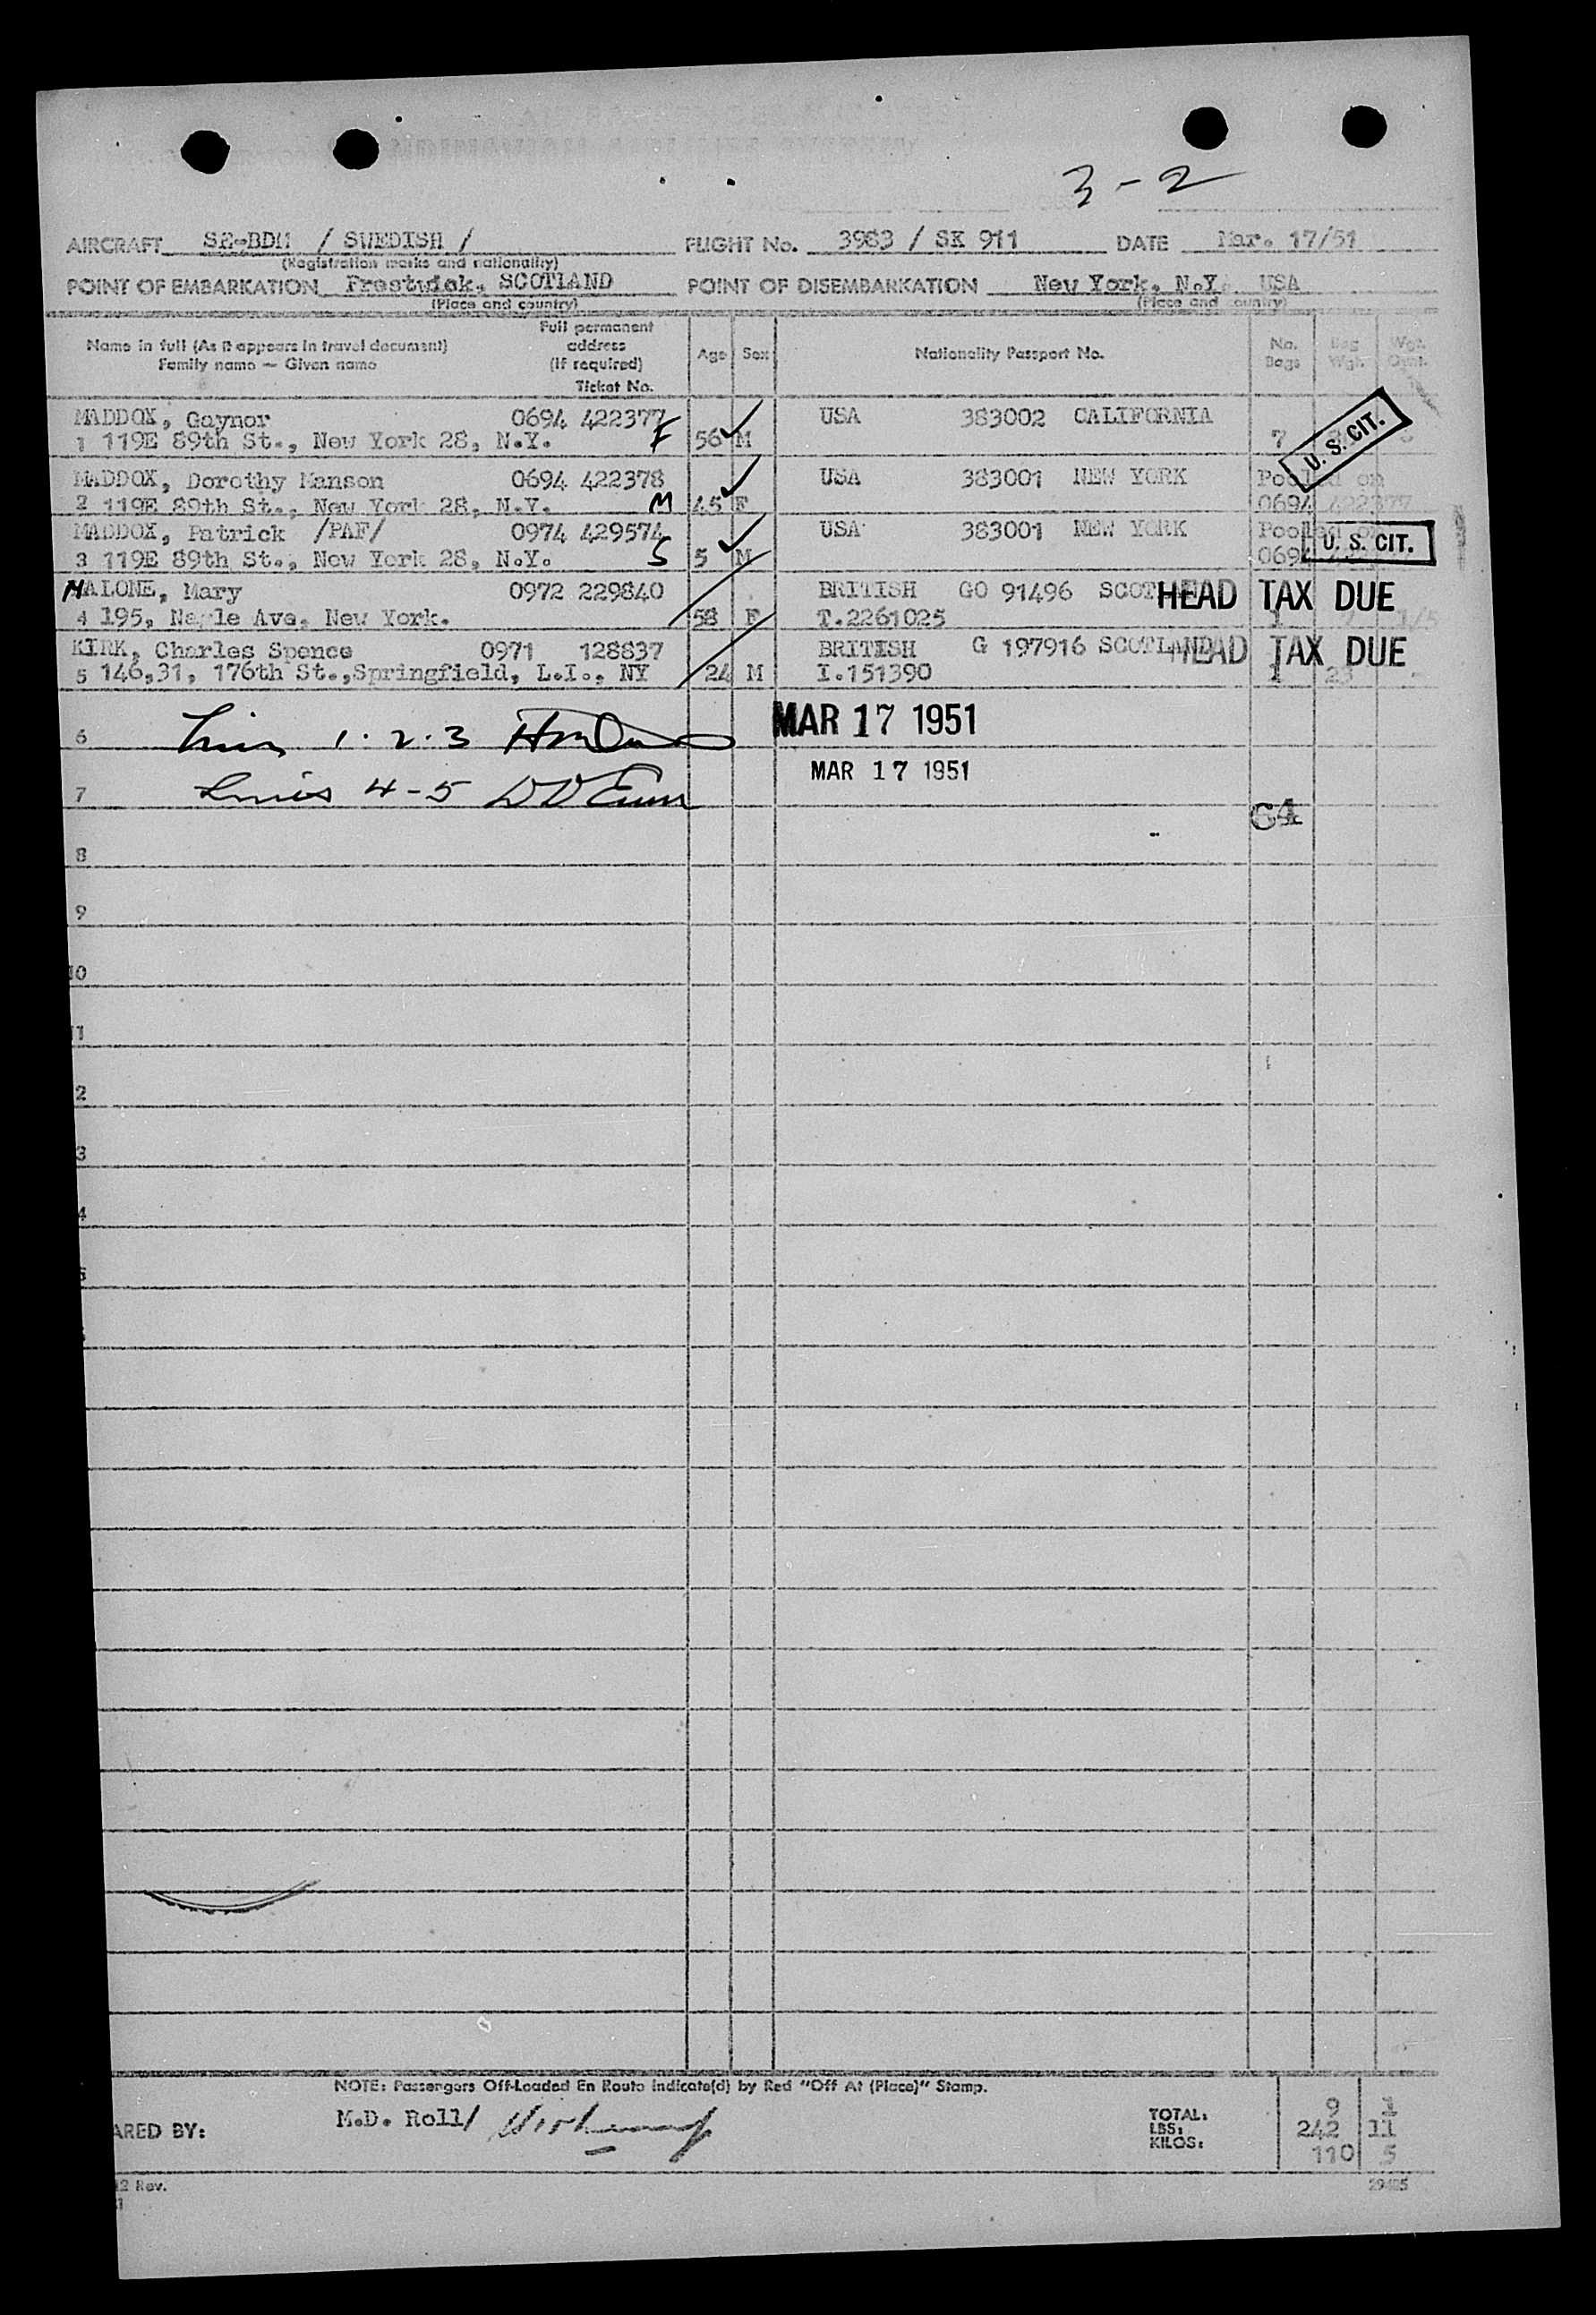 3-2
AIRCRAFT SE-BDM / SWEDISH / FLIGHT No. 3983 / SK 911 DATE Mar. 17/51
(Registration marks and nationality)
POINT OF EMBARKATION Prestwick, SCOTLAND POINT OF DISEMBARKATION New York, N.Y. USA
(Place and country) (Place and country)
Name in full (As it appears in travel document) Family name — Given name Full permanent address (If required) Ticket No. Age Sex Nationality Passport No. No. Bags Bag Wgt. Wgt.
MADDOX, Gaynor 0694 422377 USA 383002 CALIFORNIA
1 119E 89th St., New York 28, N.Y. F 56 M 7 U. S. CIT.
MADDOX, Dorothy Manson 0694 422378 USA 383001 NEW YORK Pooled on
2 119E 89th St., New York 28, N.Y. M 45 F 0694 422377
MADDOX, Patrick /PAF/ 0974 429574 USA 383001 NEW YORK Pooled on
3 119E 89th St., New York 28, N.Y. S 5 M 0694 U. S. CIT.
MALONE, Mary 0972 229840 BRITISH GO 91496 HEAD TAX DUE
4 195, Nagle Ave, New York. 58 F T.2261025 1
KIRK, Charles Spence 0971 128837 BRITISH G 197916 SCOTLAND HEAD TAX DUE
5 146,31, 176th St.,Springfield, L.I., NY 24 M I.151390 1 23
6 1. 2. 3 MAR 17 1951
MAR 17 1951
7 Lines 4-5
64
8
9
10
11
2
3
4
5
NOTE: Passengers Off-Loaded En Route Indicate(d) by Red "Off At (Place)" Stamp.
ARED BY: M.D. Roll/
TOTAL: 9 1
LBS: 242 11
KILOS: 110 5
12 Rev.